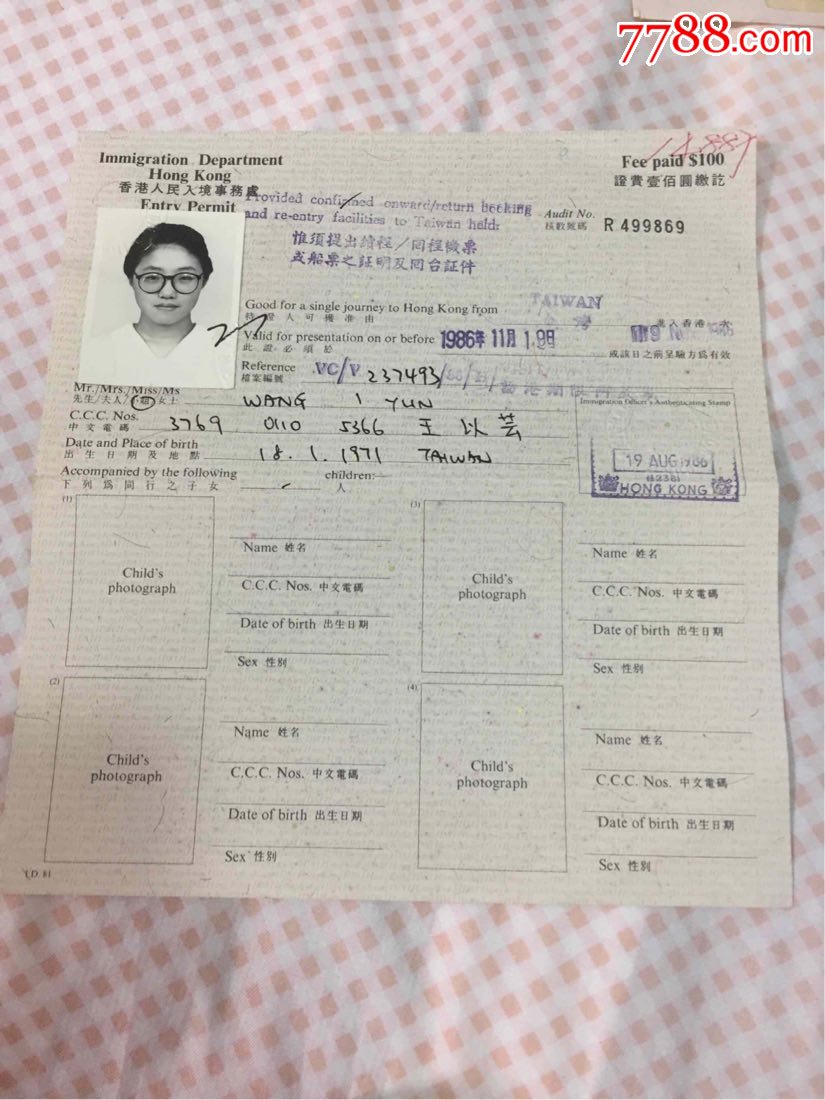 7788.com
Immigration Department
Hong Kong
香港人民入境事務處
Entry Permit
Fee paid $100
證費壹佰圓繳訖
Provided confirmed onward/return booking
and re-entry facilities to Taiwan held:
惟須提出續程/回程機票
或船票之証明及回台証件
Audit No. R 499869
核數號碼
Good for a single journey to Hong Kong from TAIWAN
持證人可獲准由 台灣 進入香港一次
Valid for presentation on or before 1986年 11月 19日
此證必須於 或該日之前呈驗方為有效
Reference VC/V 237493
檔案編號
Mr./Mrs./Miss/Ms WANG I YUN
先生/夫人/小姐/女士
Immigration Officer's Authenticating Stamp
C.C.C. Nos. 3769 0110 5366 王以芸
中文電碼
Date and Place of birth 18. 1. 1971 TAIWAN
出生日期及地點
19 AUG 1986
HONG KONG
Accompanied by the following children:—
下列為同行之子女 人
(1)
Child's
photograph
Name 姓名
C.C.C. Nos. 中文電碼
Date of birth 出生日期
Sex 性別
(3)
Child's
photograph
Name 姓名
C.C.C. Nos. 中文電碼
Date of birth 出生日期
Sex 性別
(2)
Child's
photograph
Name 姓名
C.C.C. Nos. 中文電碼
Date of birth 出生日期
Sex 性別
(4)
Child's
photograph
Name 姓名
C.C.C. Nos. 中文電碼
Date of birth 出生日期
Sex 性別
I.D. 81